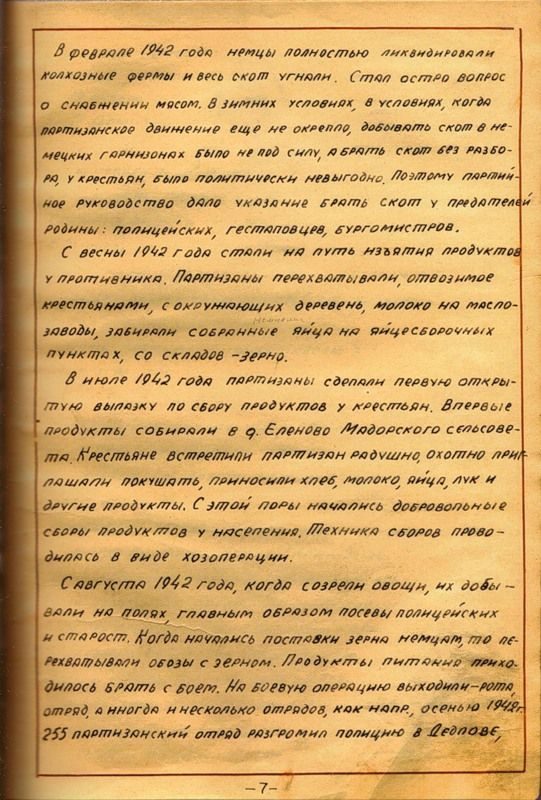 В феврале 1942 года немцы полностью ликвидировали
колхозные фермы и весь скот угнали. Стал остро вопрос
о снабжении мясом. В зимних условиях, в условиях, когда
партизанское движение еще не окрепло, добывать скот в не-
мецких гарнизонах было не под силу, а брать скот без разбо-
ра, у крестьян, было политически невыгодно. Поэтому партий-
ное руководство дало указание брать скот у предателей
родины: полицейских, гестаповцев, бургомистров.
С весны 1942 года стали на путь изъятия продуктов
у противника. Партизаны перехватывали, отвозимое
крестьянами, с окружающих деревень, молоко на масло-
заводы, забирали собранные яйца на яйцесборочных
пунктах, со складов - зерно.
В июле 1942 года партизаны сделали первую откры-
тую вылазку по сбору продуктов у крестьян. Впервые
продукты собирали в д. Еленово Мадорского сельсове-
та. Крестьяне встретили партизан радушно, охотно приг-
лашали покушать, приносили хлеб, молоко, яйца, лук и
другие продукты. С этой поры начались добровольные
сборы продуктов у населения. Техника сборов прово-
дилась в виде хозоперации.
С августа 1942 года, когда созрели овощи, их добы-
вали на полях, главным образом посевы полицейских
и старост. Когда начались поставки зерна немцам, то пе-
рехватывали обозы с зерном. Продукты питания прихо-
дилось брать с боем. На боевую операцию выходили - рота,
отряд, а иногда и несколько отрядов, как напр., осенью 1942г.
255 партизанский отряд разгромил полицию в Дедлове,
-7-